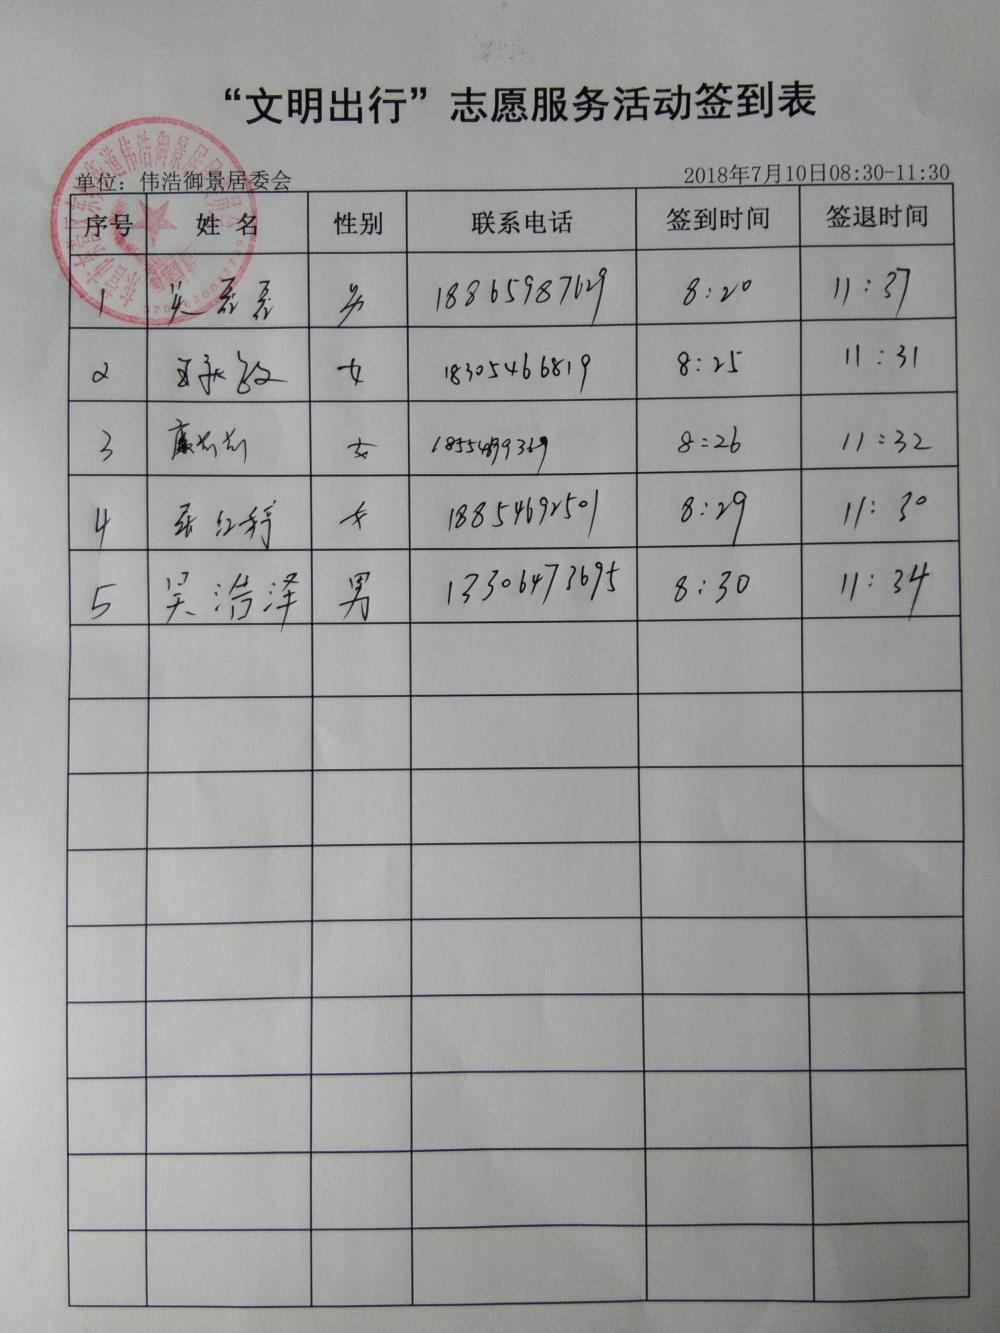 “文明出行”志愿服务活动签到表
单位：伟浩御景居委会 2018年7月10日08:30-11:30
序号 姓 名 性别 联系电话 签到时间 签退时间
1 男 18865987629 8:20 11:37
2 女 18305466819 8:25 11:31
3 女 8:26 11:32
4 张红婷 女 18854692501 8:29 11:30
5 吴浩泽 男 13306473695 8:30 11:34